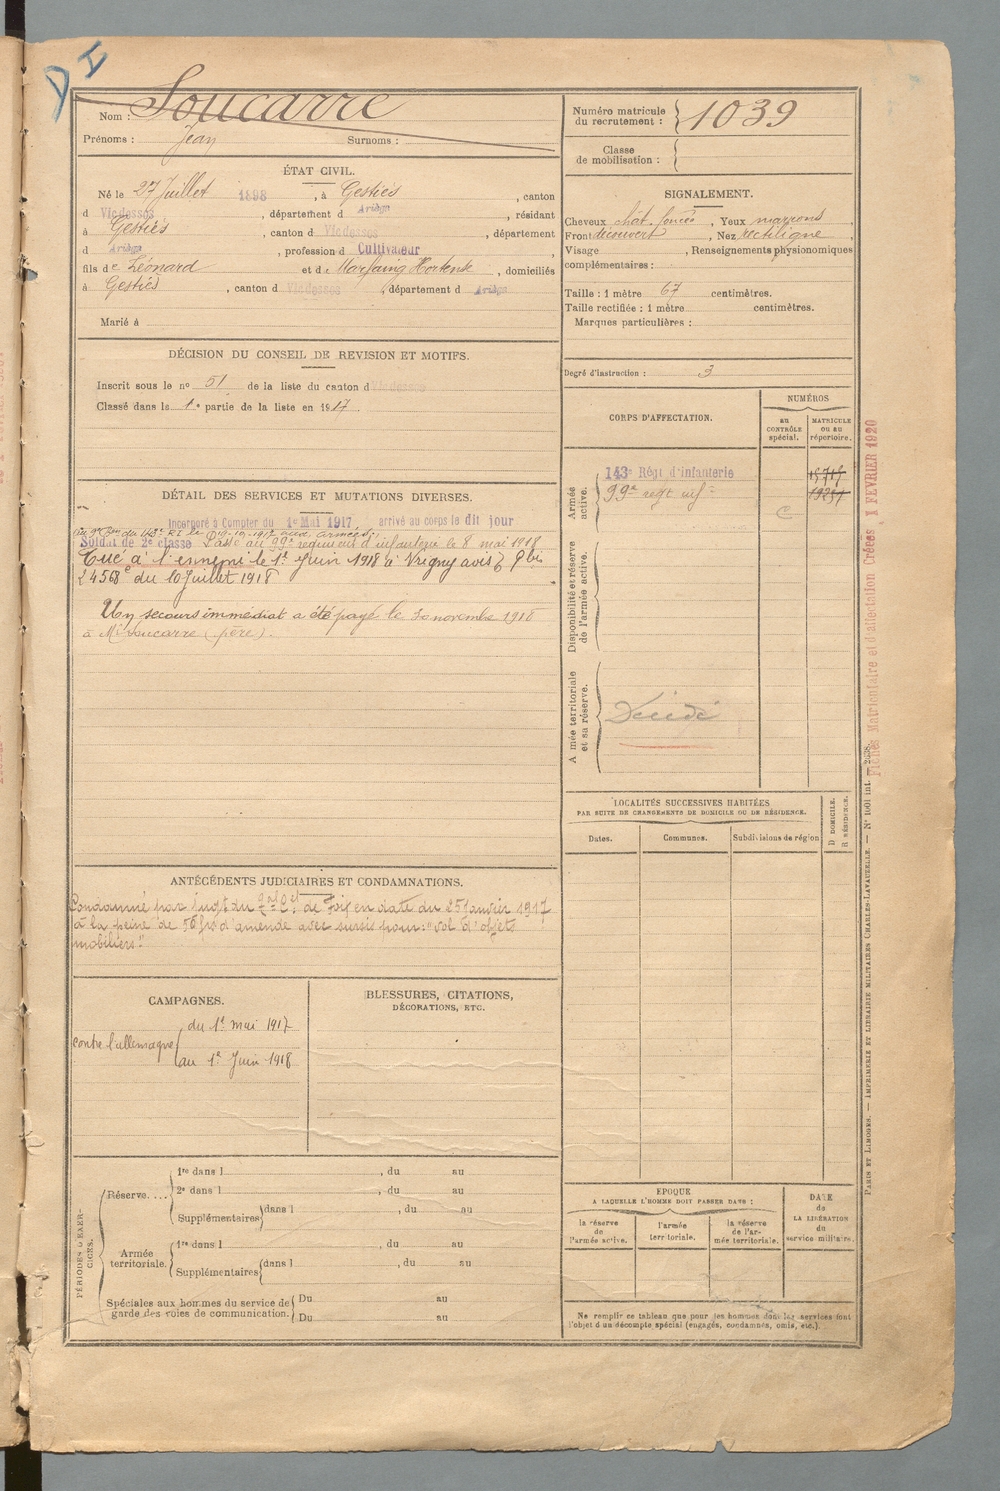 D I
Nom : Soucarre
Prénoms : Jean Surnoms :
Numéro matricule du recrutement : 1039
Classe de mobilisation :
ÉTAT CIVIL.
Né le 27 Juillet 1898, à Gestiés, canton
d Vicdessos, département d Ariège, résidant
à Gestiés, canton d Vicdessos, département
d Ariège, profession d Cultivateur,
fils de Léonard et de Marfaing Hortense, domiciliés
à Gestiés, canton d Vicdessos, département d Ariège
Marié à
SIGNALEMENT.
Cheveux chât. foncés, Yeux marrons,
Front découvert, Nez rectiligne,
Visage, Renseignements physionomiques
complémentaires :
Taille : 1 mètre 67 centimètres.
Taille rectifiée : 1 mètre centimètres.
Marques particulières :
Degré d'instruction : 3
DÉCISION DU CONSEIL DE REVISION ET MOTIFS.
Inscrit sous le no 51 de la liste du canton d Vicdessos
Classé dans le 1e partie de la liste en 1917.
CORPS D'AFFECTATION.
NUMÉROS
AU CONTRÔLE spécial.
MATRICULE OU AU répertoire.
Armée active.
143e Régt d'infanterie
99e regt inf
C
Disponibilité et réserve de l'armée active.
A mée territoriale et sa réserve.
Décédé
DÉTAIL DES SERVICES ET MUTATIONS DIVERSES.
Incorporé à Compter du 1er Mai 1917, arrivé au corps le dit jour
Soldat de 2e classe Passé au 99e régiment d'infanterie le 8 mai 1918
Tué à l'ennemi le 1er Juin 1918 à Vrigny avis
24568 du 10 Juillet 1918
Un secours immédiat a été payé le novembre 1918
à Mr Soucarre (père).
LOCALITÉS SUCCESSIVES HABITÉES
PAR SUITE DE CHANGEMENTS DE DOMICILE OU DE RÉSIDENCE.
Dates. Communes. Subdivisions de région
D DOMICILE.
R RÉSIDENCE.
ANTÉCÉDENTS JUDICIAIRES ET CONDAMNATIONS.
Condamné par Jugt du de Foix en date du 25 Janvier 1917
à la peine de frs d'amende avec sursis pour: "vol d'objets
mobiliers"
CAMPAGNES.
contre l'allemagne
du 1er mai 1917
au 1er Juin 1918
BLESSURES, CITATIONS,
DÉCORATIONS, ETC.
PÉRIODES D'EXERCICES.
Réserve....
1re dans l, du au
2e dans l, du au
Supplémentaires dans l, du au
Armée territoriale.
1re dans l, du au
Supplémentaires dans l, du au
Spéciales aux hommes du service de garde des voies de communication.
Du au
Du au
EPOQUE
A LAQUELLE L'HOMME DOIT PASSER DANS :
la réserve de l'armée active.
l'armée territoriale.
la réserve de l'armée territoriale.
DATE de LA LIBÉRATION du service militaire.
Ne remplir ce tableau que pour les hommes dont les services font
l'objet d'un décompte spécial (engagés, condamnés, omis, etc.).
Fiches Matriculaire et d'affectation Créées, 1 FEVRIER 1920
PARIS ET LIMOGES. — IMPRIMERIE ET LIBRAIRIE MILITAIRES CHARLES-LAVAUZELLE. — No 1001 int. 2638.